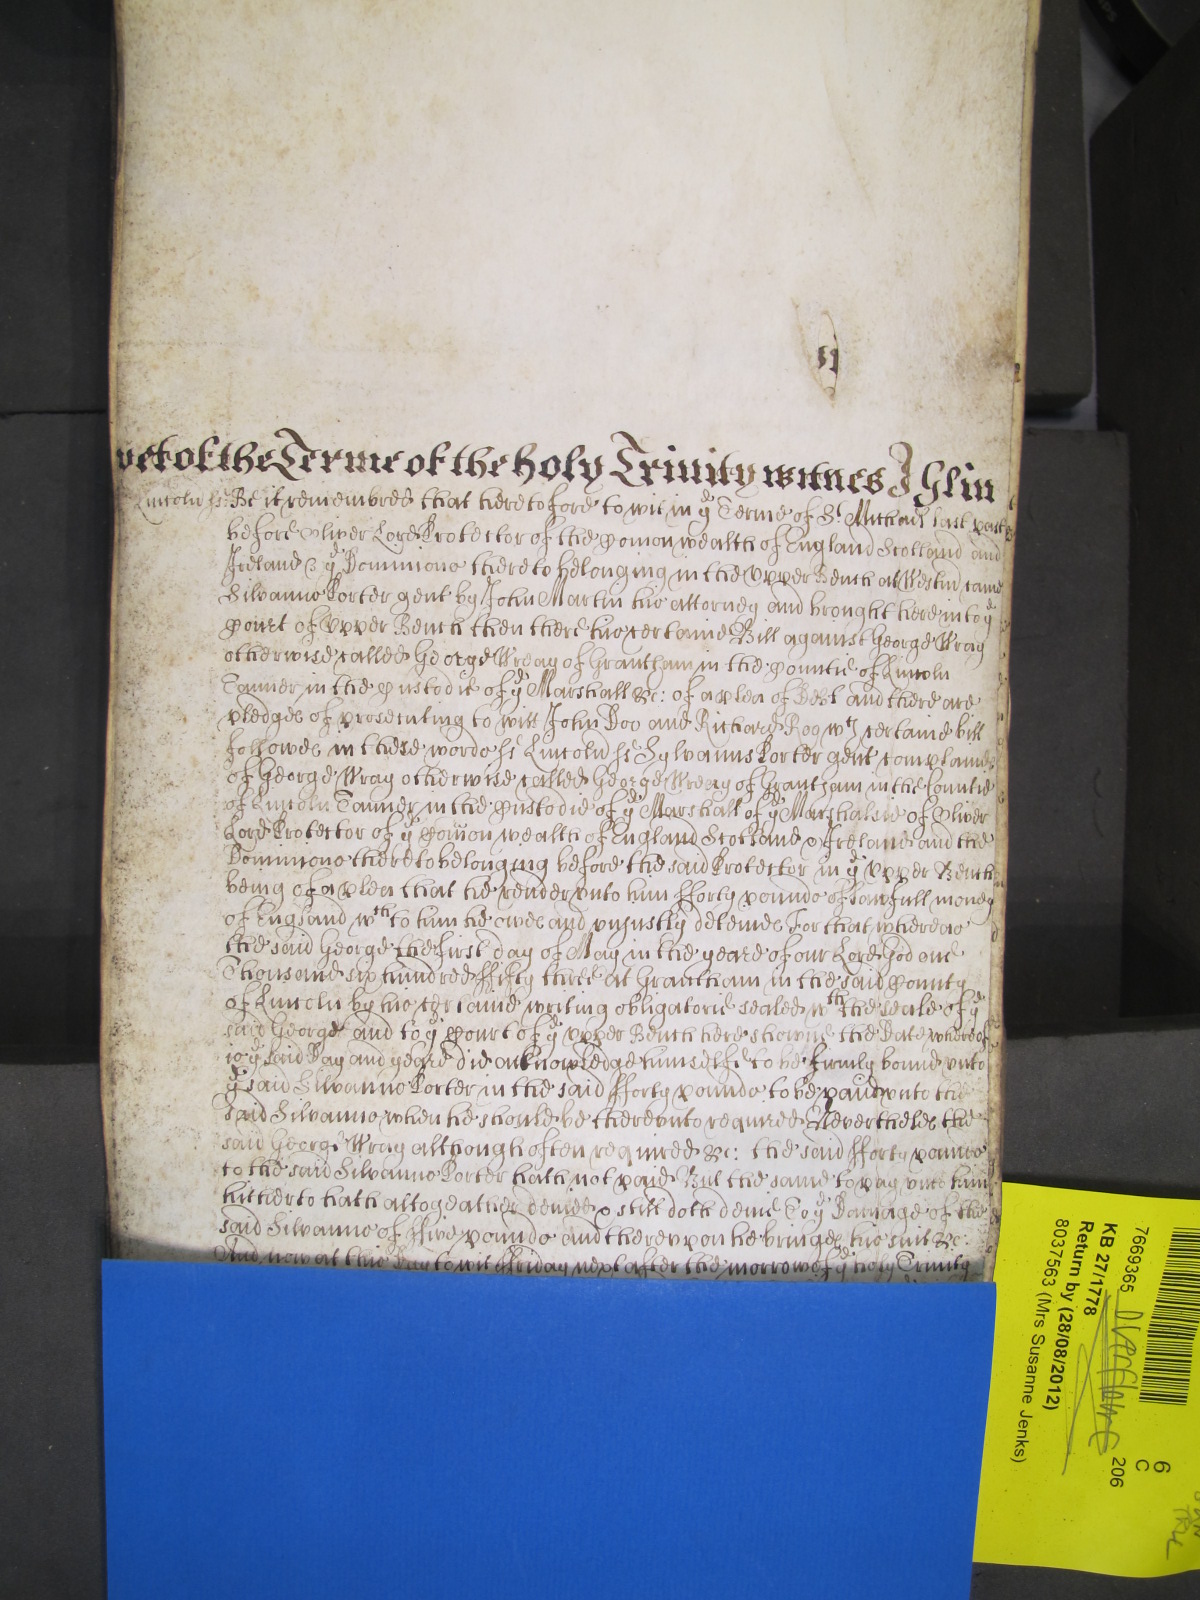 yet of the Terme of the Holy Trinity witnes J Glin
Lincoln ss Be it remembred that heretofore to wit in ye Terme of St. Michael last past
before Oliver Lord Protector of the Comon wealth of England Scotland and
Ireland & ye Dominions thereto belonging in the Upper Bench at Westm came
Silvanus Porter gent by John Martin his attorney and brought here into ye
Court of Upper Bench then there his certaine Bill against George Wray
otherwise called George Wreay of Grantham in the Countie of Lincoln
Tanner in the Custodie of ye Marshall &c: of a plea of Debt and there are
pledges of prosecuting to witt John Doo and Richard Roo wch certaine bill
followes in these words ss Lincoln ss Sylvanus Porter gent complaines
of George Wray otherwise called George Wreay of Grantham in the Countie
of Lincoln Tanner in the Custodie of ye Marshall of ye Marshalsie of Oliver
Lord Protector of ye Comon wealth of England Scotland & Ireland and the
Dominions thereto belonging before the said Protector in ye Upper Bench
being of a plea that he render unto him fforty pounds of lawfull money
of England wch to him he owes and unjustly deteines For that whereas
the said George the first day of May in the yeare of our Lord God one
Thousand six hundred fifty three at Grantham in the said County
of Lincoln by his certaine writing obligatorie sealed wth the seale of ye
said George and to ye Court of ye Upper Bench here showne the Date whereof
is ye said Day and yeare did acknowledge himselfe to be firmly bound unto
ye said Silvanus Porter in the said fforty pounds to be paid unto the
said Silvanus when he should be thereunto required Neverthelesse the
said George Wray although often required &c: the said fforty pounds
to the said Silvanus Porter hath not paid But the same to pay unto him
hitherto hath altogeather denied & still doth denie To ye Damage of the
said Silvanus of ffive pounds and thereupon he bringes his suit &c:
And now at this Day to wit ffriday next after the morrow of ye holy Trinity
7669365
KB 27/1778
Return by (28/08/2012)
8037563 (Mrs Susanne Jenks)
206
6
C